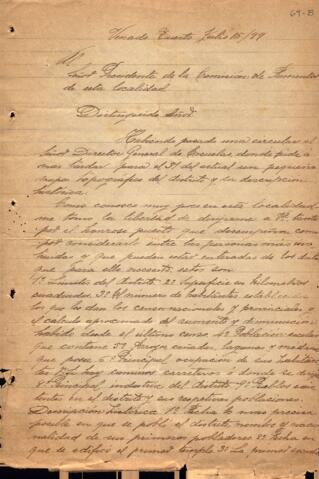 69-B
Venado Tuerto Julio 15/99
Al
Señor Presidente de la Comision de Fomento
de esta localidad
Distinguido Señor
Habiendo pasado una circular el
Señor Director General de Escuelas, donde pide á
mas tardar para el 31 del actual un pequeño
mapa topográfico del distrito y su descripcion
historica.
Como conozco muy poco en esta localidad
me tomo la libertad de dirijirme a Vd. tanto
por el honroso puesto que desempeña como
por considerarlo entre las personas mas
y que pueden estar enteradas de los datos
que para ello necesito, estos son
1º Limites del distrito 2º Superficie en kilometros
cuadrados 3º El numero de habitantes
los que dan los censos nacionales y provinciales y
el calculo aproximado del aumento y disminucion
habido desde el último censo 4º Poblacion escolar
que contiene 5º Arroyos cañadas, lagunas y
que posee 6º Principal ocupacion de sus habitan
tes 7º Si hay caminos carreteros ó donde se
8º Principal industria del distrito 9º Pueblos
en el distrito y sus respectivas poblaciones.
Descripcion historica. 1º Fecha lo mas precisa
posible en que se pobló el distrito nombre y nacio
nalidad de sus primeros pobladores 2º Fecha en
que se edificó el primer templo 3º La primer